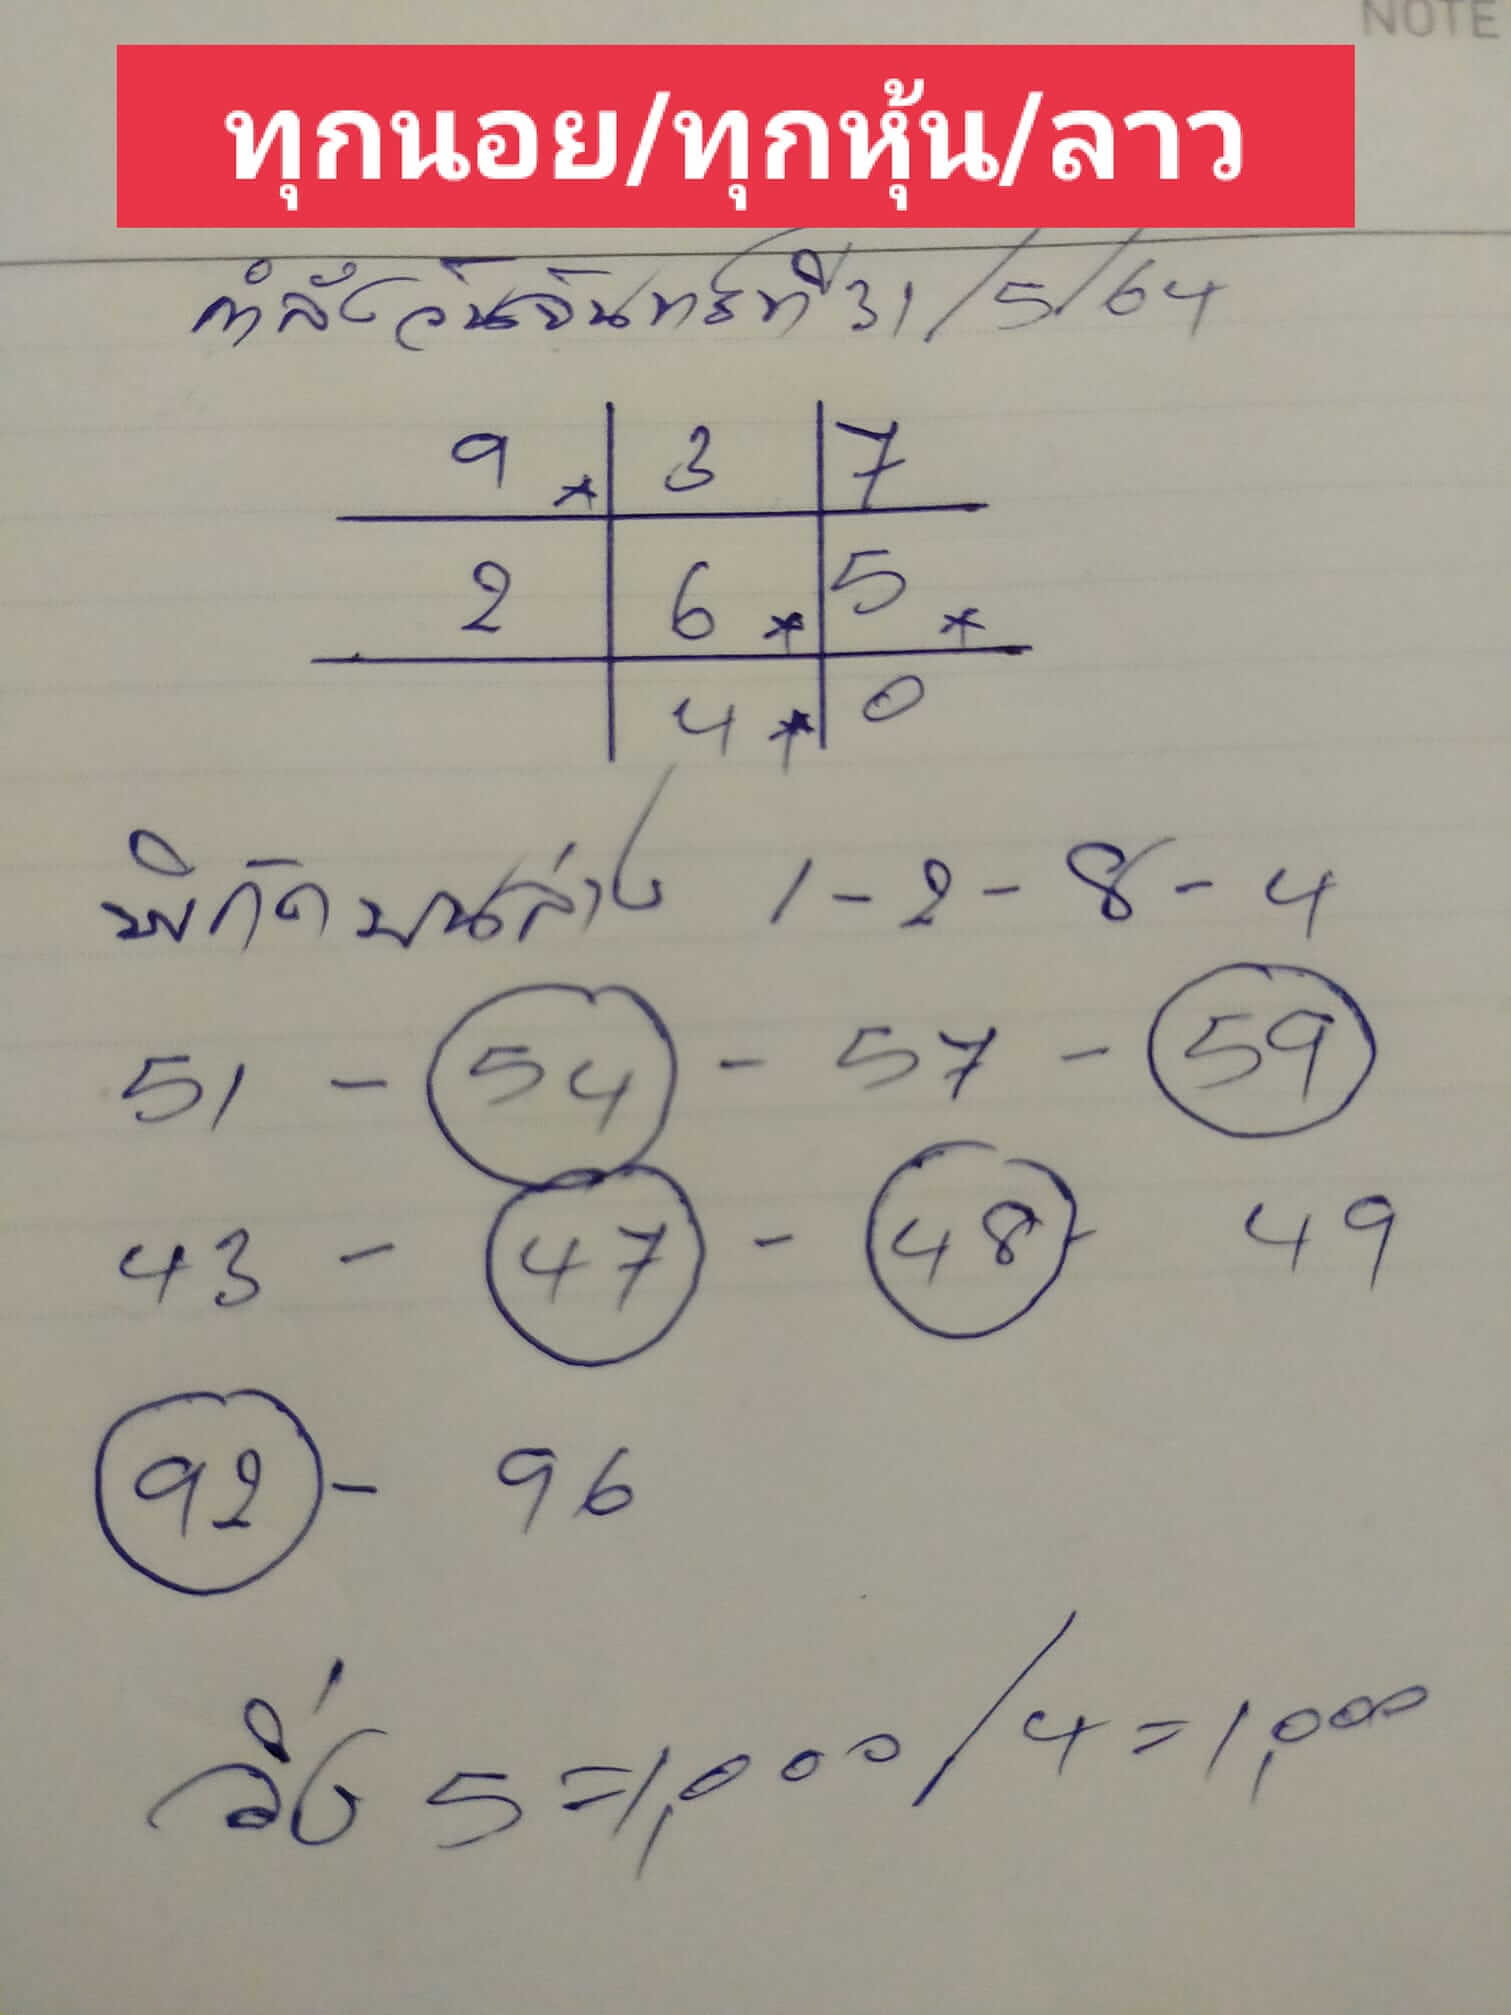 NOTE
ทุกนอย/ทุกหุ้น/ลาว
กำลังวันจันทร์ที่ 31/5/64
9 * 3 7
2 6 * 5 *
4 * 0
พิกัดบนล่าง 1-2-8-4
51 - 54 - 57 - 59
43 - 47 - 48 - 49
92 - 96
วิ่ง 5=1,000/4=1,000